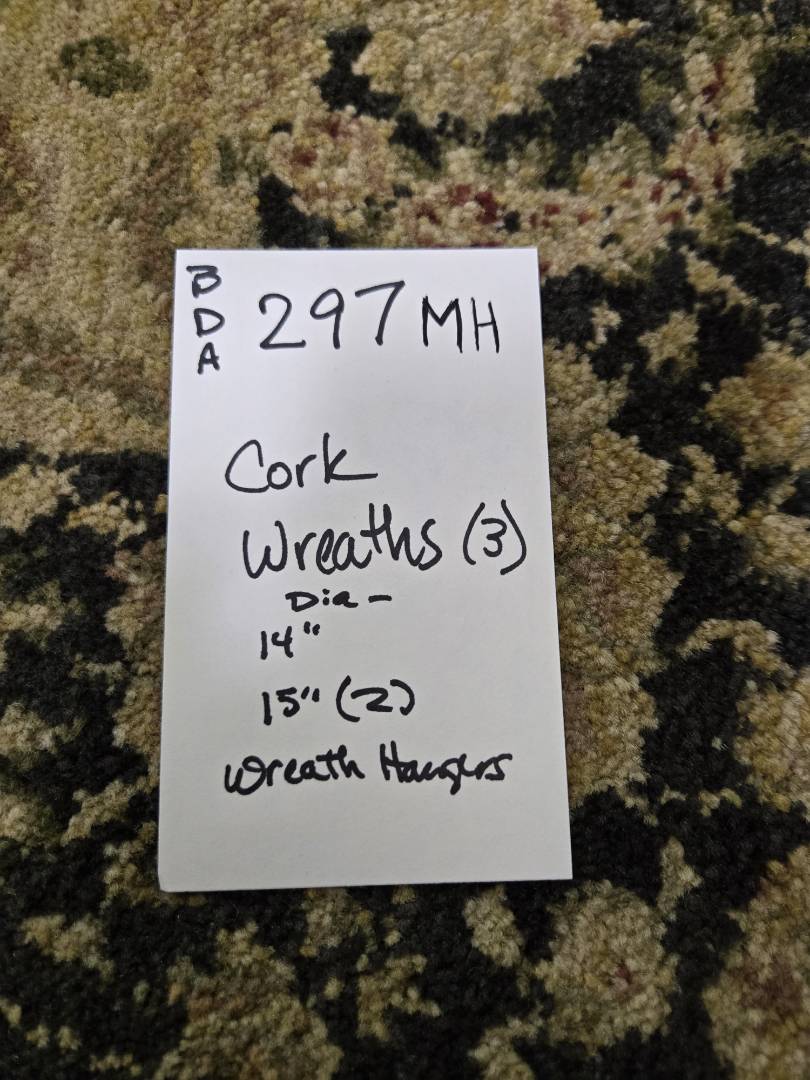 B
D
A
297 MH
Cork
Wreaths (3)
Dia -
14"
15" (2)
Wreath Hangers